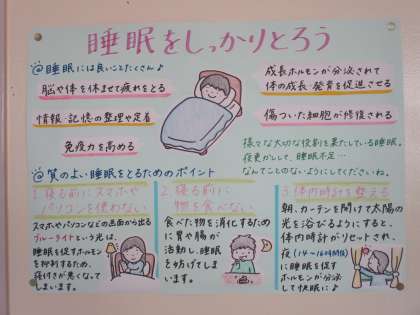 睡眠をしっかりとろう
◎睡眠には良いことたくさん♪
脳や体を休ませて疲れをとる
情報・記憶の整理や定着
免疫力を高める
成長ホルモンが分泌されて
体の成長・発育を促進させる
傷ついた細胞が修復される
様々な大切な役割を果たしている睡眠。
夜更かしして、睡眠不足…
なんてことのないようにしてくださいね。
◎質のよい睡眠をとるためのポイント
1.寝る前にスマホや
パソコンを使わない
スマホやパソコンなどの画面から出る
ブルーライトという光は、
睡眠を促すホルモン
を抑制するため、
寝付きが悪くなって
しまいます。
2.寝る前に
物を食べない
食べた物を消化するため
に胃や腸が
活動し、睡眠
を妨げてしま
います。
3.体内時計を整える
朝、カーテンを開けて太陽の
光を浴びるようにすると、
体内時計がリセットされ、
夜(14〜16時間後)
に睡眠を促す
ホルモンが分泌
して快眠に♪